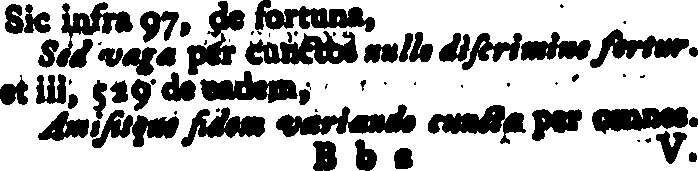 Sic infra 97, de fortuna,
Sed vaga per cunctos nullo diſcrimine fertur.
et iii, 529 de eadem,
Amiſitque fidem variando cuncta per omnes.
B b 2 V.